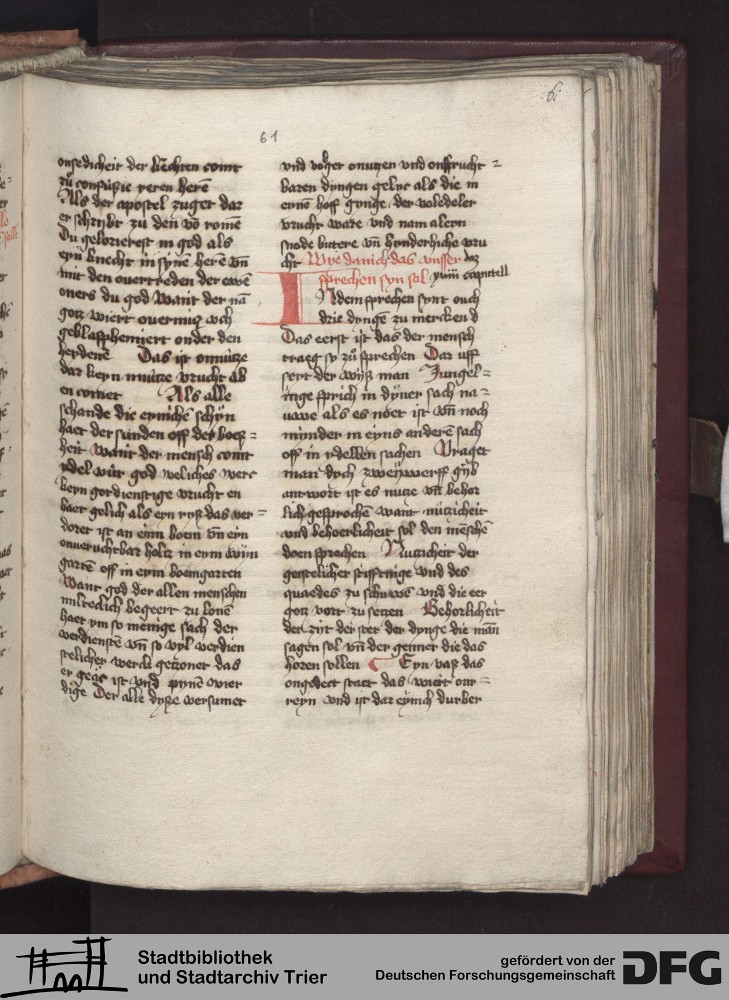 61
onsedicheit der knechten comt
zu confusie yeren herē
Als der apostel zuget dar
er schrybt zu den vō romē
Du gelorierest in god als
eyn knecht in synē herē vn̄
mit den overtreden der ewē
oners du god want der nā
gotz wiert overmitz uch
geblasphemiert onder den
heydenē Das ist onnutze
dar keyn nnutze vrucht ab
en comet Als alle
schande die eynichē schyn
haet der sunden off der boes=
heit want der mensch comt
ydel vur god weliches werc
keyn gotdienstige vrucht en
baet gelich als eyn ryß das ver=
doret ist an eim boem vn̄ eyn
onvruchtbar holtz in eym wijn
gartē off in eym boemgarten
Want god der allen menschen
mildelich begeert zu lonē
haet ym so menige sach der
verdienstē vn̄ so vyl verdien
stelicher werck getzonet das
er
dige Der alle dyße versumet
vnd
baren dyngen gelyc als die in
eynē hoff gynge der voledeler
vrucht ware vnd nam aleyn
snode bittere vn̄ honderliche vru
cht Wye danich das vnsser
sprechen syn sol xviii capittell
Indem sprechen synt ouch
drie dyngē zu mercken d
Das eerst ist das der mensch
traeg sy zu sprechen Dar uff
sext der wyß man Jungel=
inge sprich in dyner sach na=
uwe als es noet ist vn̄ noch
mynder in eyns anderē sach
off in ydellen sachen Vraget
man dych zweywerff gyb
antwort ist es nutze vn̄ behor
lich gesprochē want nutzicheit
vnd behoerlicheit sol den mēschē
doen sprechen Nutzicheit der
geistelicher stifftnige vnd des
quaedes zu schuwen vnd die eer
gotz vort zu setzen Behorlicheit
der zijt der stet der dynge die man
sagen sol vn̄ der genner die das
horen sollen Eyn vaß das
ongedect staet das wiert onr=
reyn vnd ist dar eynich durber
Stadtbibliothek
und Stadtarchiv Trier
gefördert von der
Deutschen Forschungsgemeinschaft
DFG